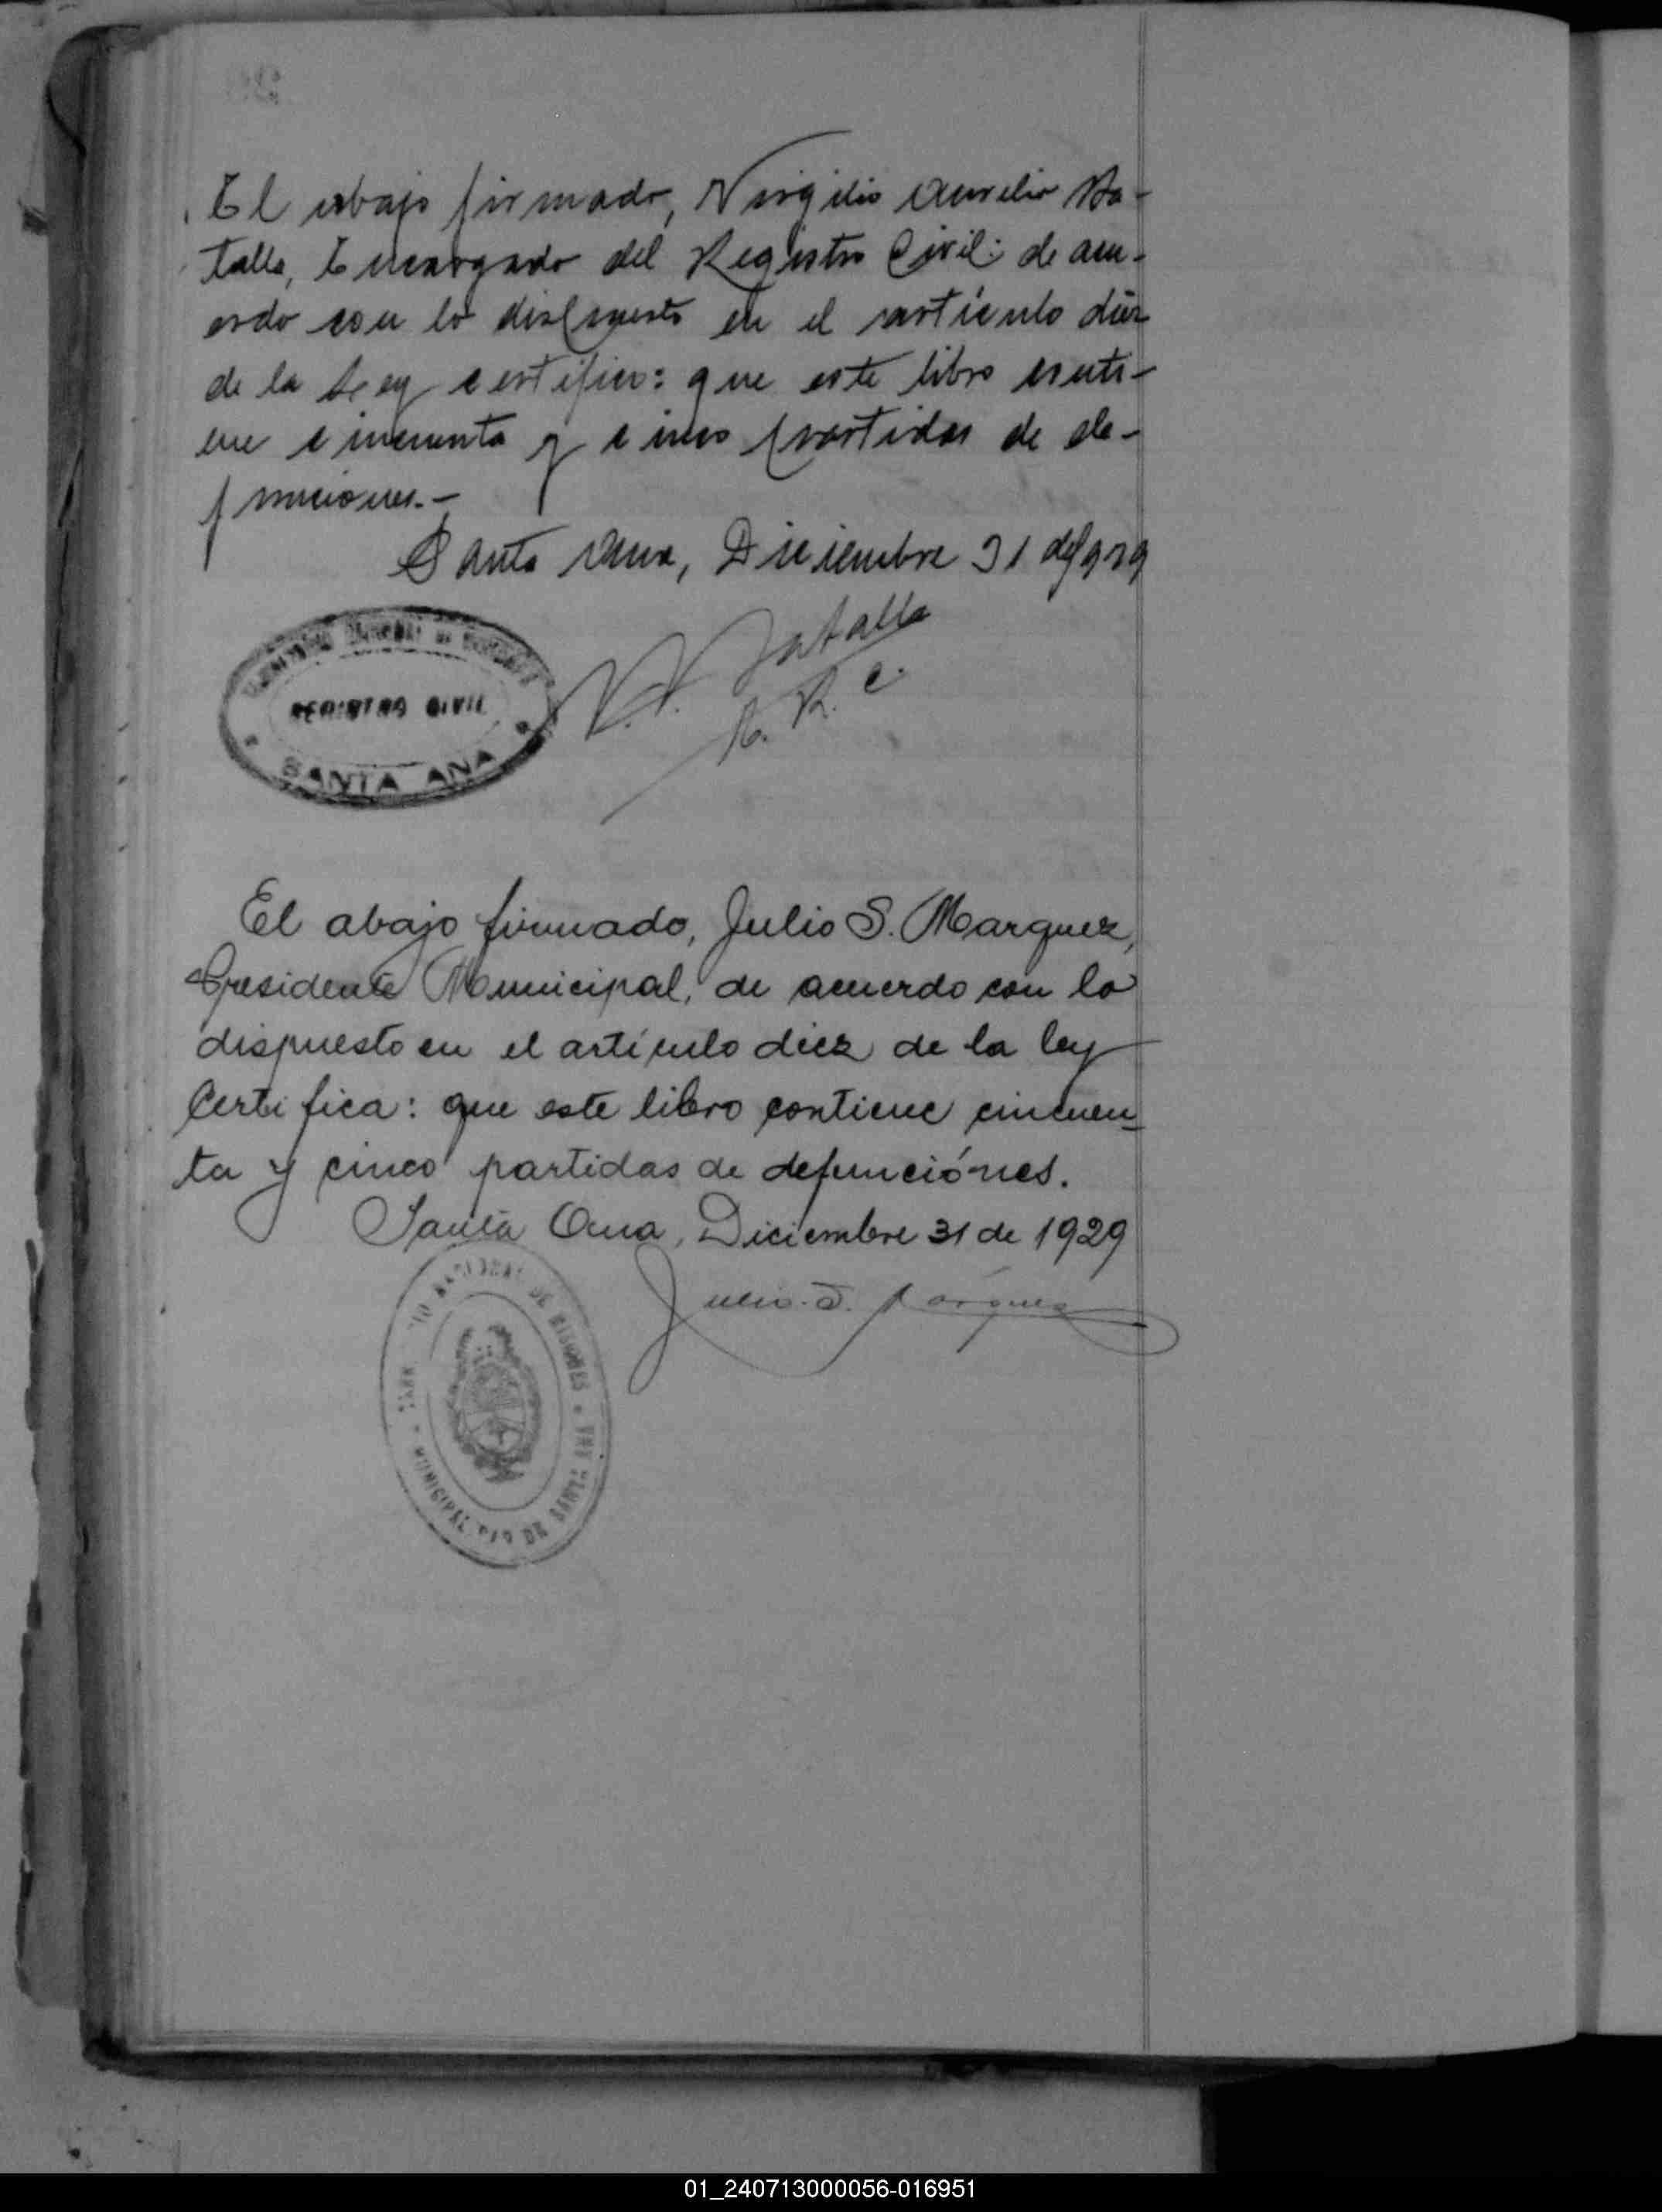 El abajo firmado, Virgilio Aurelio Ba-
talla, Encargado del Registro Civil: de acu-
erdo con lo dispuesto en el artículo diez
de la Ley certifico: que este libro conti-
ene cincuenta y cinco partidas de de-
funciones.-
Santa Ana, Diciembre 31 de 1929
REGISTRO CIVIL
SANTA ANA
V. A. Batalla
E. R. C.
El abajo firmado, Julio S. Marquez,
Presidente Municipal, de acuerdo con lo
dispuesto en el artículo diez de la ley
Certifica: que este libro contiene cincuen-
ta y cinco partidas de defunciónes.
Santa Ana, Diciembre 31 de 1929
Julio S. Márquez
NACIONAL DE MISIONES
MUNICIPALIDAD DE SANTA ANA
01_240713000056-016951